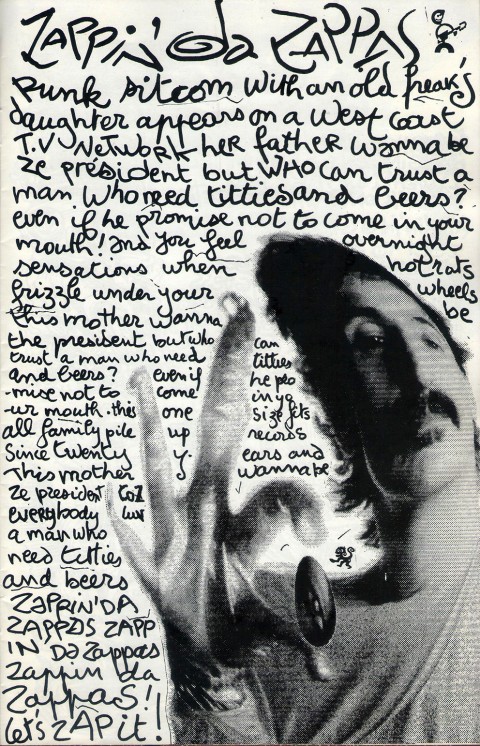 ZAPPIN' da ZAPPAS
Punk sitcom with an old freak's
daughter appears on a West Coast
T.V Network her father wanna be
ze président but WHO can trust a
man who need titties and beers?
even if he promise not to come in your
mouth! and you feel overnight
sensations when hot rats
frizzle under your wheels
this mother wanna be
the president but who can
trust a man who need titties
and beers? even if he pro
-mise not to come in yo
-ur mouth. this one size fits
all family pile up records
Since twenty y. ears and
This mother wannabe
ze president coz
everybody luv
a man who
need titties
and beers
ZAPPIN'DA
ZAPPAS ZAPP
IN' Da Zappas
Zappin da
Zappas!!
Let's ZAP it!